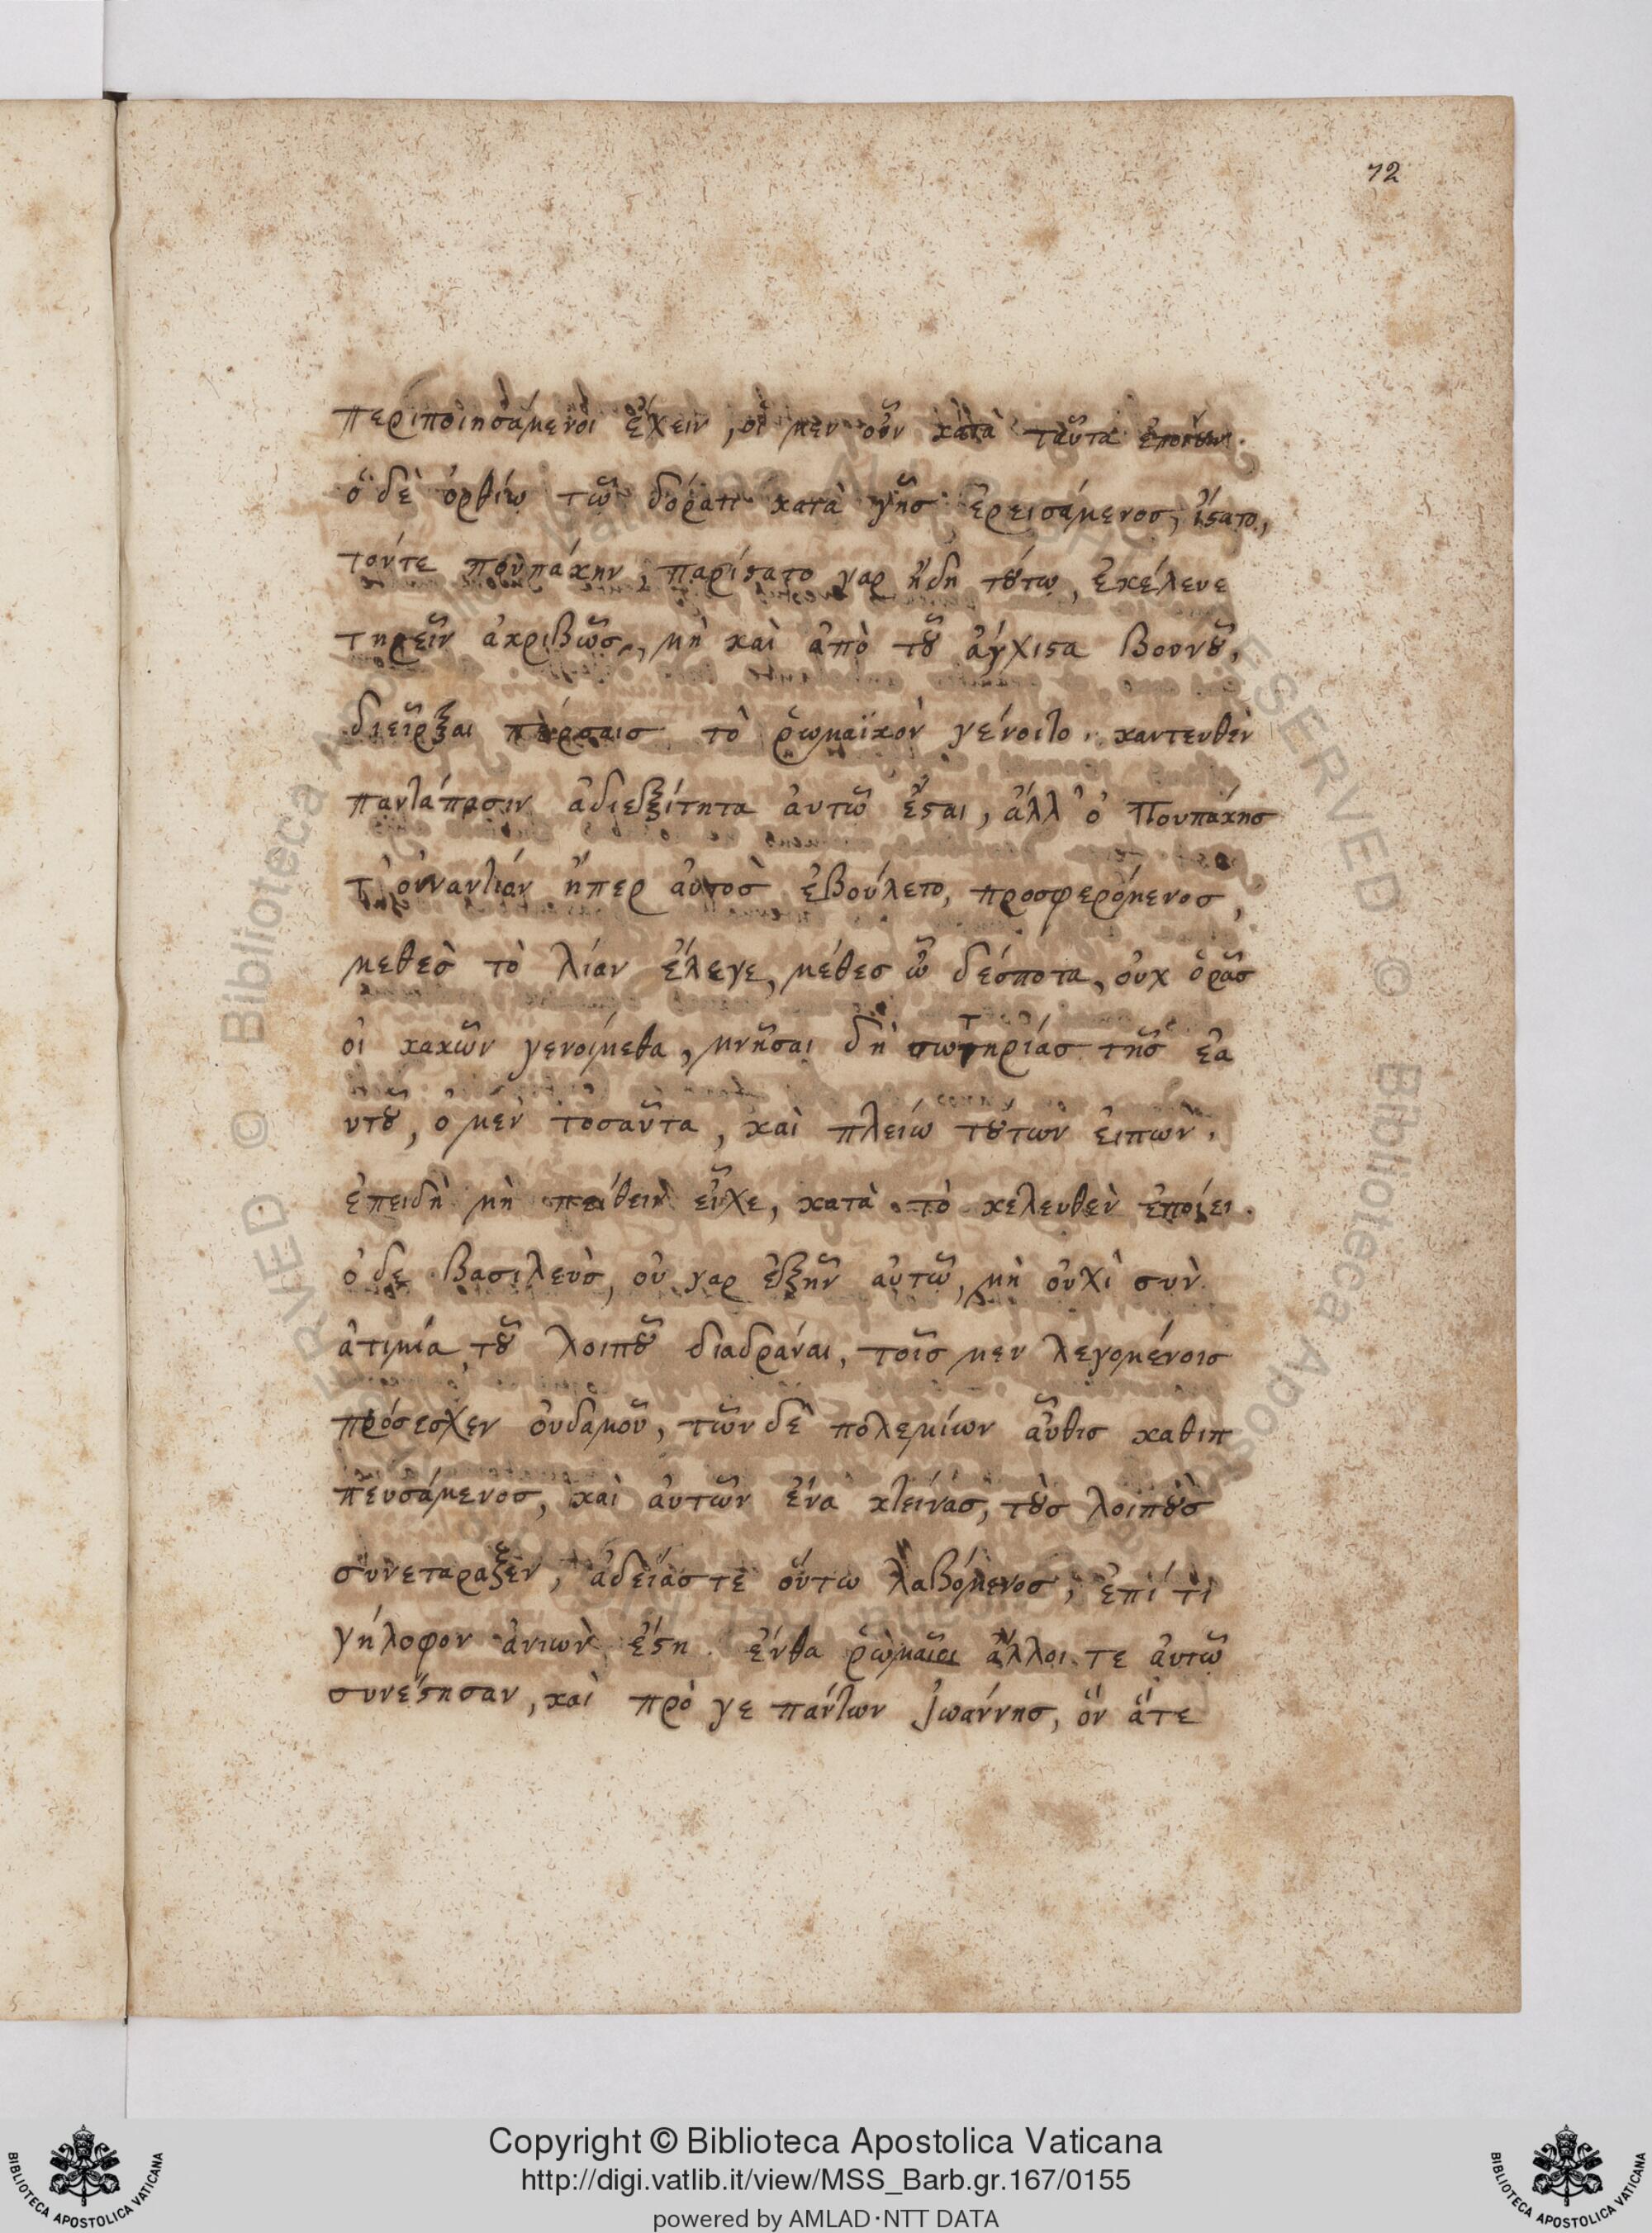 72
περιποιησάμενοι ἔχειν, οἱ μεν οὖν κατὰ ταῦτα ἐποίουν.
ὁ δὲ ὀρθίῳ τῶ δόρατι κατὰ γῆς ἐρεισάμενος, ἵϛατο,
τόντε πουπάκην, παρίϛατο γαρ ἤδη τȣ́τῳ, ἐκέλευε
τηρεῖν ἀκριβῶς, μὴ καὶ ἀπὸ τȣ͂ ἄγχιϛα βουνȣ͂,
διεῖρξαι πέρσαις τὸ ῥωμαϊκὸν γένοιτο. καντευθὲν
παντάπασιν ἀδιεξίτητα ἀυτῶ ἔϛαι, ἀλλ' ὁ Πουπάκης
τ' ὀυναντίον ἥπερ ἀυτοσ ἐβούλετο, προσφερόμενος,
μεθεσ τὸ λίαν ἔλεγε, μέθες ὦ δέσποτα, ὀυχ ὁρᾶς
οἱ κακῶν γενοίμεθα, μνῆσαι δὴ σωτηρίας τῆς ἑα
υτȣ͂, ὁ μεν τοσαῦτα, καὶ πλείω τȣ́των ἐιπὼν.
ἐπειδὴ μὴ πείθειν εἶχε, κατὰ τὸ κελευθὲν ἐποίει.
ὁ δε βασιλεὺς, ὀυ γαρ ἐξῆν ἀυτῶ, μὴ ὀυχὶ συν
ἀτιμία τȣ͂ λοιπȣ͂ διαδράναι, τοῖς μεν λεγομένοις
πρόσεσχεν ὀυδαμοῦ, τῶν δὲ πολεμίων ἆυθις καθιπ
πευσάμενος, καὶ ἀυτῶν ἕνα κτείνας, τȣ̀ς λοιπȣ̀ς
συνεταραξεν, ἀδείας τὲ ὅυτω λαβόμενος, ἐπί τι
γήλοφον ἀνιὼν ἔϛη. ἔνθα ῥωμαῖοι ἄλλοι τε ἀυτῶ
συνέϛησαν, καὶ πρό γε πάντων ἰωάννης, ὃν ἅτε
Copyright © Biblioteca Apostolica Vaticana
http://digi.vatlib.it/view/MSS_Barb.gr.167/0155
powered by AMLAD·NTT DATA